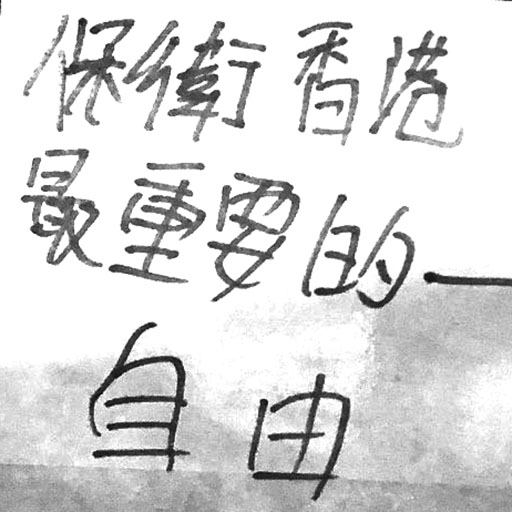 保衛香港
最重要的一
自由